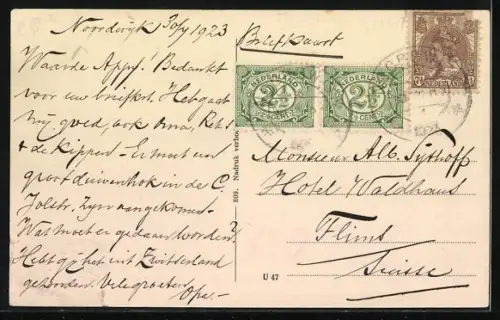 Noordwijk 30/7 1923
Briefkaart
Waarde Appy! Bedankt
voor uw briefkrt. Het gaat
mij goed, ook oma,
& de kippen. Er moet een
groot duivenhok in de C.
Jolstr. zijn aangekomen.
Wat moet er gedaan worden?
Hebt gij het uit Zwitserland
gezonden. Vele groeten
Opa.
NEDERLAND
2½
CENT
NEDERLAND
2½
CENT
7½
Monsieur Alb. Sijthoff
Hotel Waldhaus
Flims
Suisse
809. Nadruk verboden
U 47